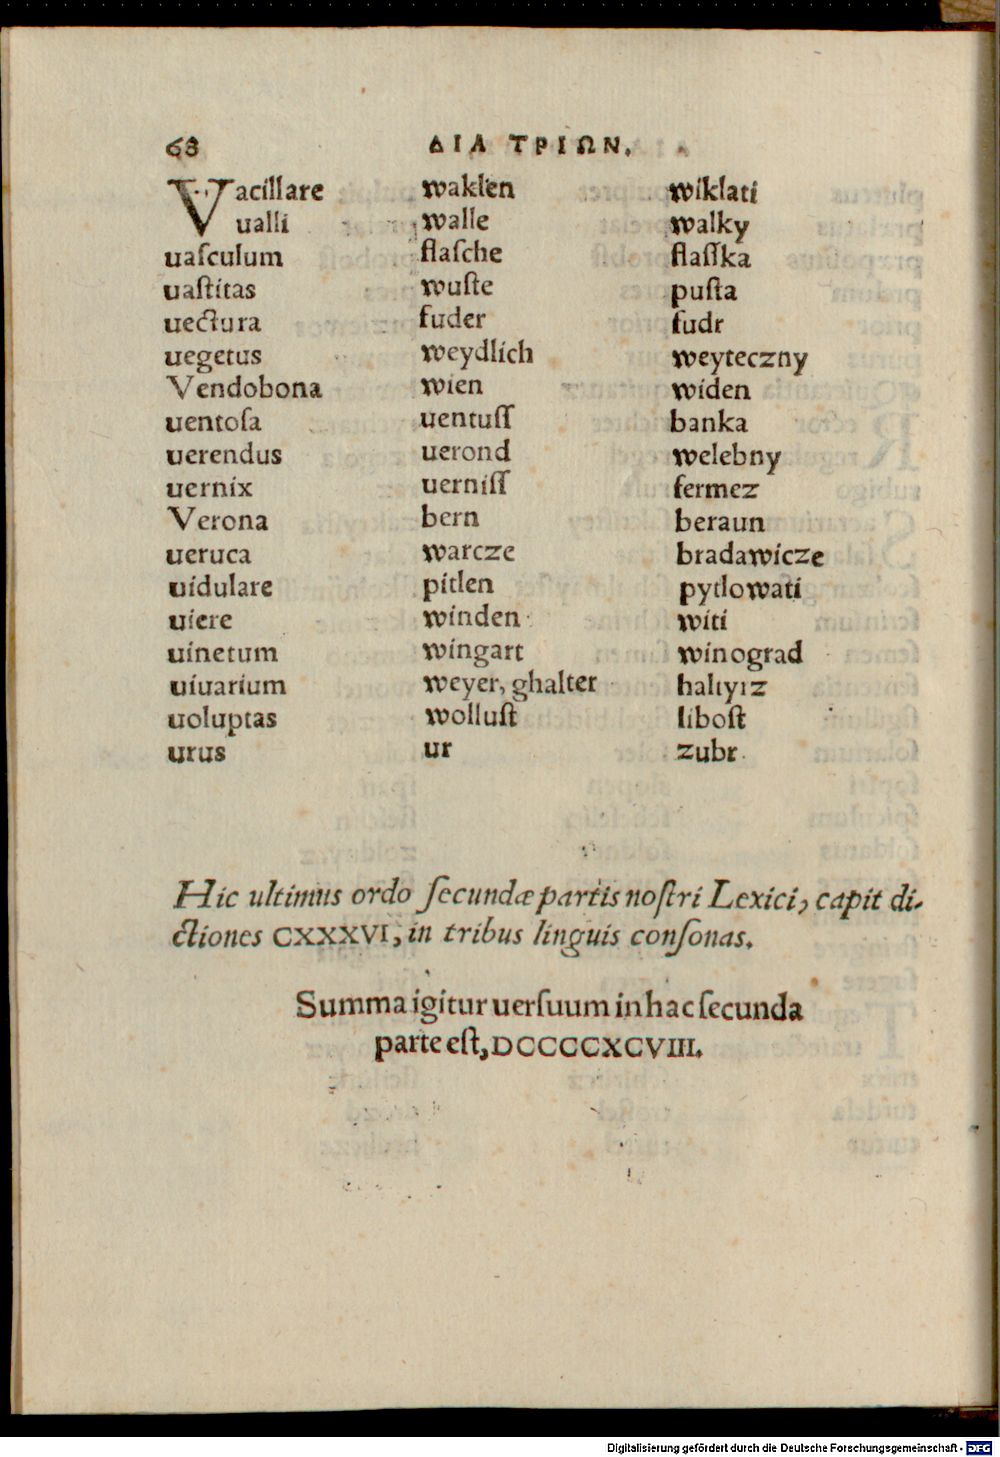 68 ΔΙΑ ΤΡΙΩΝ.
Vacillare waklen wiklati
ualli walle walky
uaſculum flaſche flaſſka
uaſtitas wuſte puſta
uectura fuder fudr
uegetus weydlich weyteczny
Vendobona wien widen
uentoſa uentuſſ banka
uerendus uerond welebny
uernix uerniſſ fermez
Verona bern beraun
ueruca warcze bradawicze
uidulare pitlen pytlowati
uiere winden witi
uinetum wingart winograd
uiuarium weyer, ghalter haltyrz
uoluptas wolluſt liboſt
urus ur zubr
Hic ultimus ordo ſecundæ partis noſtri Lexici, capit di-
ctiones CXXXVI, in tribus linguis conſonas.
Summa igitur uerſuum in hac ſecunda
parte eſt, DCCCCXCVIII.
Digitalisierung gefördert durch die Deutsche Forschungsgemeinschaft - DFG